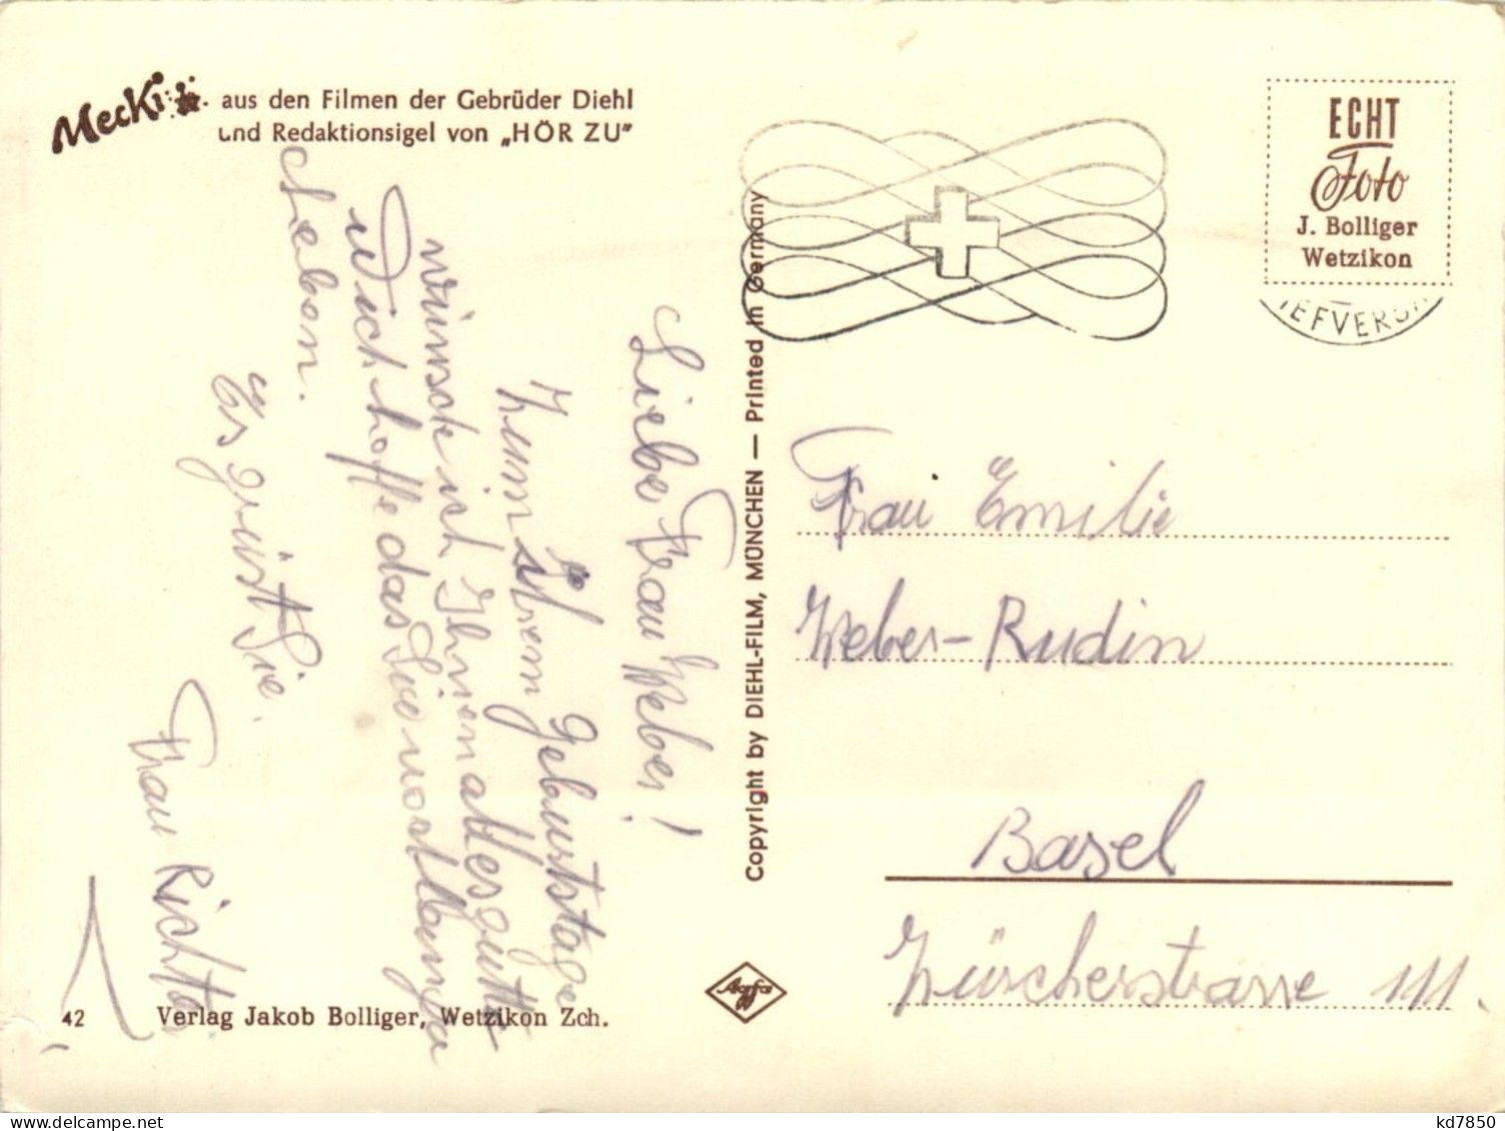 Mecki
aus den Filmen der Gebrüder Diehl
und Redaktionsigel von „HÖR ZU"
ECHT
Foto
J. Bolliger
Wetzikon
IEFVERS
Liebe Frau Weber!
Zum Ihrem Geburtstage
wünsche ich Ihnen alles gutte
und hoffe das Sie noch lange
Leben.
Es grüst Sie.
Frau Richter
Copyright by DIEHL-FILM, MÜNCHEN — Printed in Germany
Frau Emilie
Weber-Rudin
Basel
Zürcherstrasse 111.
Agfa
42
Verlag Jakob Bolliger, Wetzikon Zch.
delcampe.net
kd7850